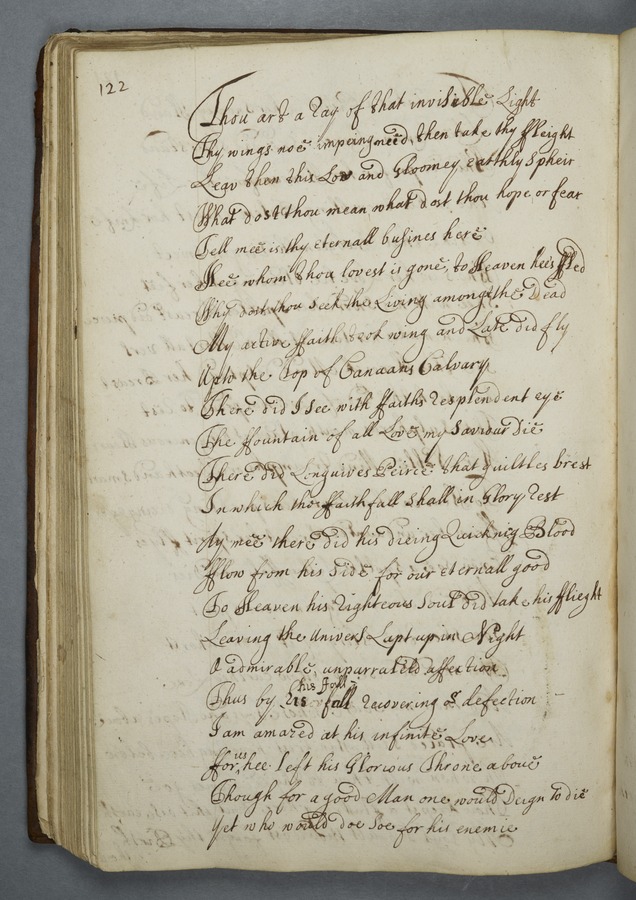 122
Thou art a Ray of that invisible Light
Thy wings noe impeingmeed then take thy fleight
Leav then this Low and Gloomey earthly Spheir
What dost thou mean what dost thou hope or fear
Tell mee is thy eternall busines here
Hee whom thou lovest is gone, to Heaven hee's ffled
Why dost thou Seek the Living amongst the Dead
My active ffaith took wing and Late did fly
Upto the Top of Canaans Calvary
There did I See with ffaiths resplendent eye
The ffountain of all Love my Saviour Die
There did Longuives Peirce that guiltles brest
In which the ffaithfall Shall in Glory rest
Ay mee there did his dieing Quickning Blood
fflow from his Side for our eternall good
To Heaven his righteous Soul did take his fflieght
Leaving the Univers Lapt up in Night
O admirable, unparralel'd affection
his ffall
Thus by his fall recovering or defection
I am amazed at his infinite Love
ffor us hee left his Glorious Throne above
Though for a good Man one would Deign to die
Yet who would doe Soe for his enemie